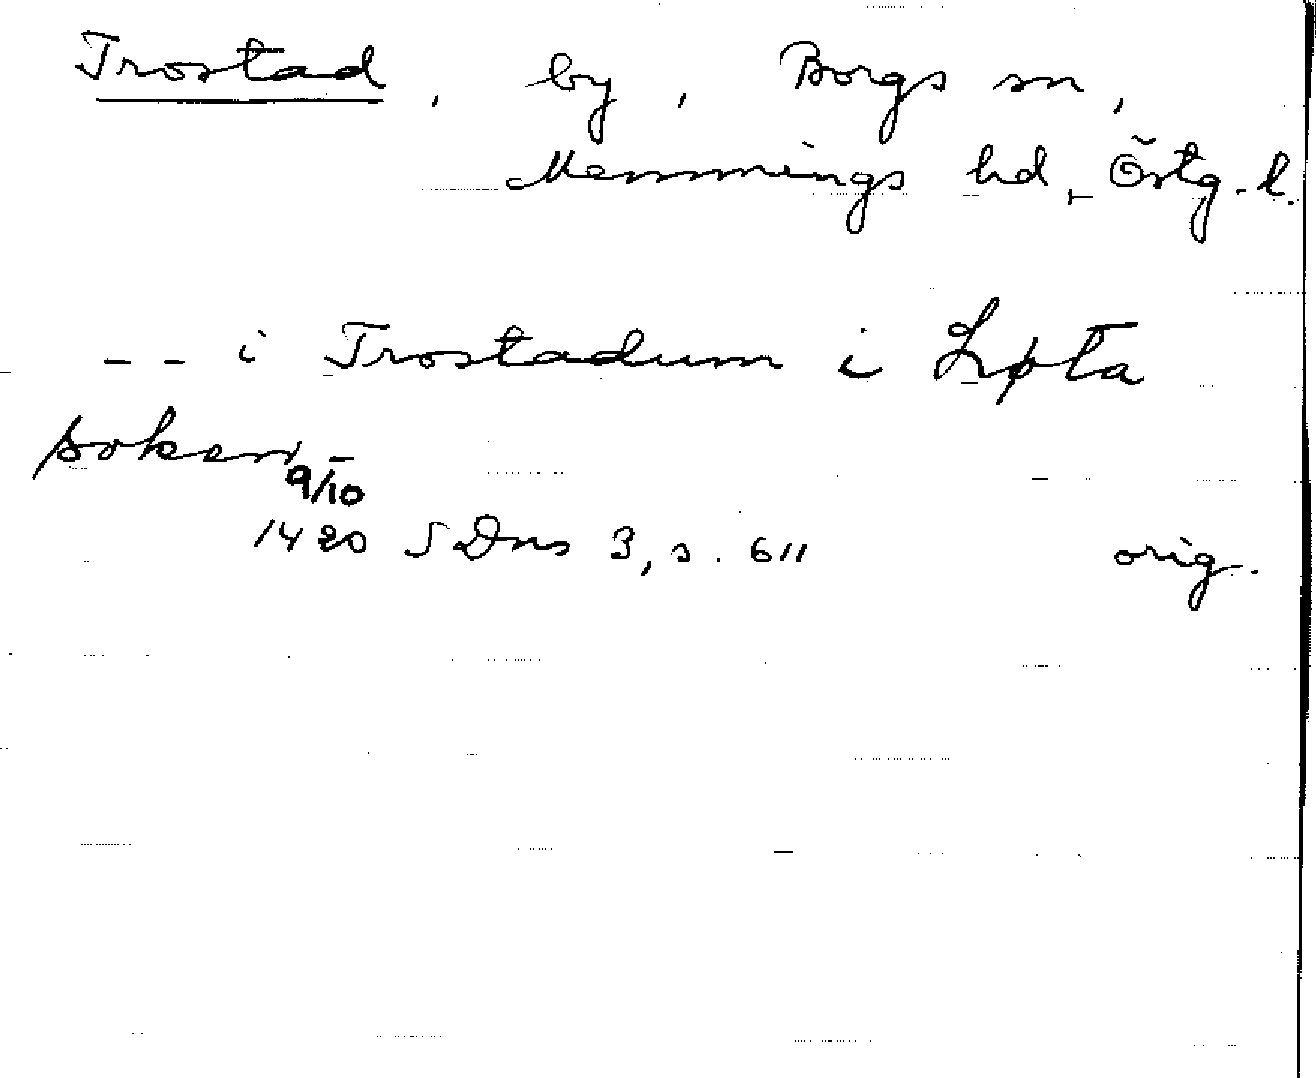 Trostad, by, Borgs sn,
Memmings hd, Östg. l.
-- i Trostadum i Løpta
soken
9/10
1420 SDns 3, s. 611 orig.